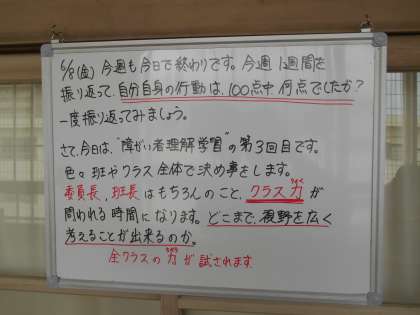 6/8(金) 今週も今日で終わりです。今週1週間を
振り返って、自分自身の行動は、100点中何点でしたか?
一度振り返ってみましょう。
さて、今日は、"障がい者理解学習"の第3回目です。
色々班やクラス全体で決め事をします。
委員長、班長はもちろんのこと、クラス力が
問われる時間になります。どこまで、視野を広く
考えることが出来るのか。
全クラスの力が試されます